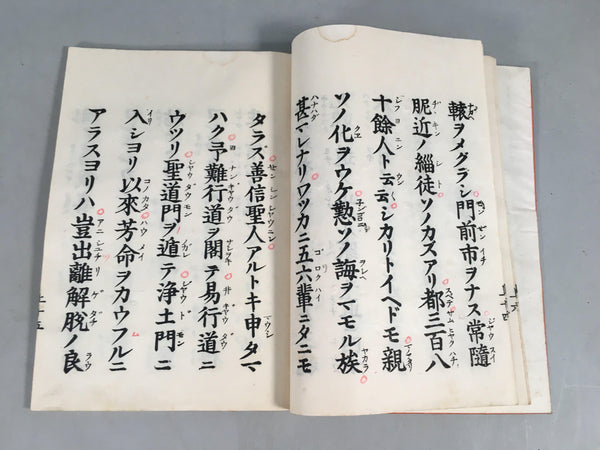 轅ヲメグラシ門前市ヲナス常隨
昵近ノ緇徒ソノカズアリ都三百八
十餘人ト云云シカリトイヘドモ親
ソノ化ヲウケ慇ソノ誨ヲマモル族
甚マレナリワツカニ五六輩ニタニモ
タラズ善信聖人アルトキ申タマ
ハク予難行道ヲ閣テ易行道ニ
ウツリ聖道門ヲ遁テ浄土門ニ
入シヨリ以來芳命ヲカウフルニ
アラスヨリハ豈出離解脱ノ良